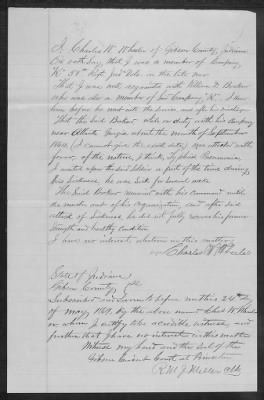 I Charles W. Wheeler of Gibson County, Indiana
On oath say, that I was a member of Company
"K" 58th Regt. Ind. Vols. in the late war.
That I was well acquainted with William F. Booker
who was also a member of said Company "K". I knew
him before he went into the service and after his discharge
That the said Booker while on duty with his Company
near Atlanta Georgia about the month of September
1864, (I cannot give the exact date) was attacked with
fever, of the nature, I think, Typhoid Pneumonia.
I waited upon the said Soldier a part of the time during
this Sickness, he was Sick for Several weeks
The Said Booker remained with his Command until
the muster out of his organization, and after said
attack of Sickness, he did not fully recover his former
Strength and healthy condition
I have no interest whatever in this matter.
Charles W. Wheeler
State of Indiana
Gibson County, SS
Subscribed and Sworn to before me this 24th day
of May, 1869, by the above named Chas W. Wheeler
whom I certify to be a credible witness, and
further that I have no interest in this matter
Witness my hand and the seal of the
Gibson Circuit Court at Princeton
W. J. Miller Clk